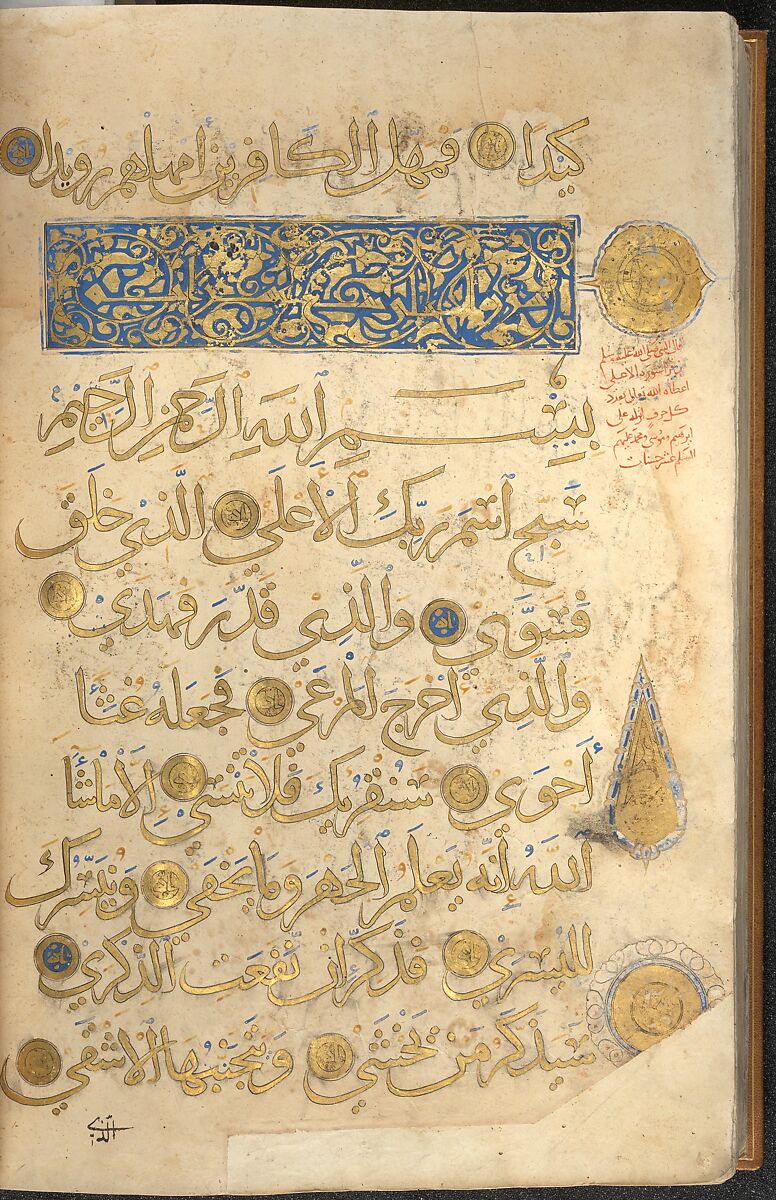 كَيْدًا فَمَهِّلِ الْكَافِرِينَ أَمْهِلْهُمْ رُوَيْدًا
بِسْمِ اللَّهِ الرَّحْمَٰنِ الرَّحِيمِ
سَبِّحِ اسْمَ رَبِّكَ الْأَعْلَى الَّذِي خَلَقَ
فَسَوَّى وَالَّذِي قَدَّرَ فَهَدَى
وَالَّذِي أَخْرَجَ الْمَرْعَى فَجَعَلَهُ غُثَاءً
أَحْوَى سَنُقْرِئُكَ فَلَا تَنْسَى إِلَّا مَا شَاءَ
اللَّهُ إِنَّهُ يَعْلَمُ الْجَهْرَ وَمَا يَخْفَى وَنُيَسِّرُكَ
لِلْيُسْرَى فَذَكِّرْ إِنْ نَفَعَتِ الذِّكْرَى
سَيَذَّكَّرُ مَنْ يَخْشَى وَيَتَجَنَّبُهَا الْأَشْقَى
الذي
قال النبي صلى الله عليه وسلم
سورة الاعلى
اعطاه الله
كل حرف انزله على
ابرهيم وموسى ومحمد عليهم
السلم عشر حسنات